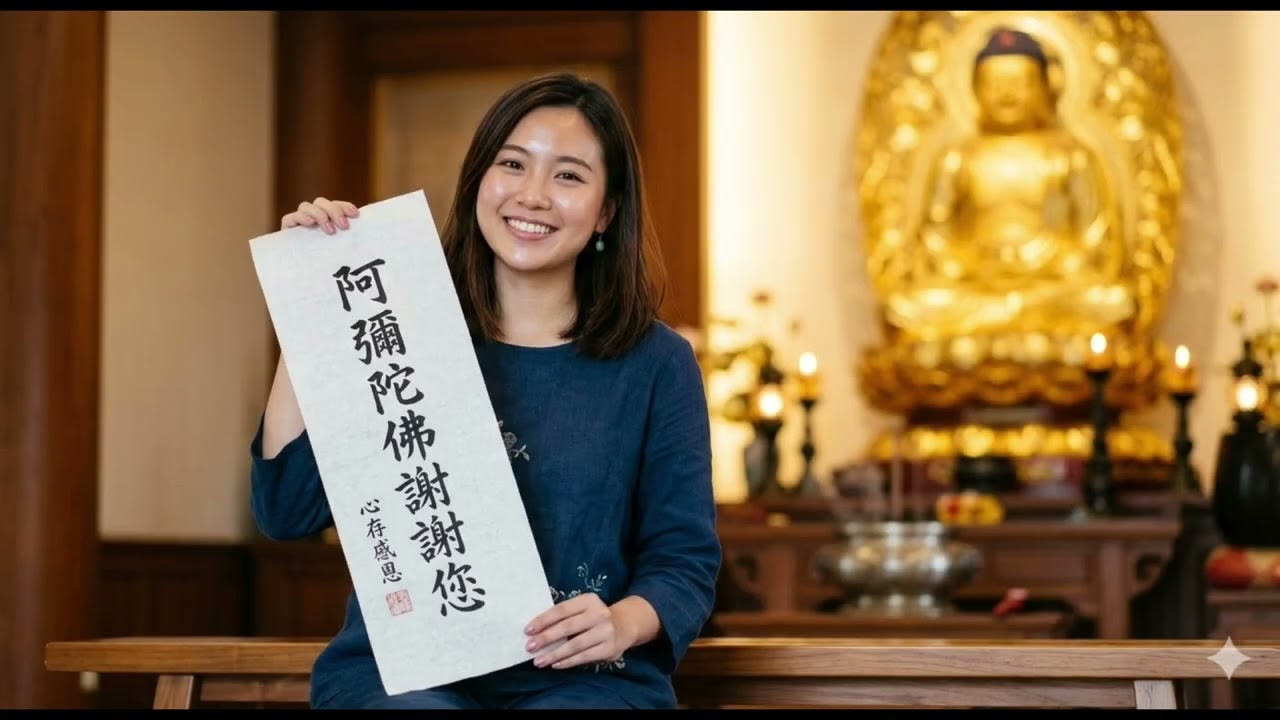 阿彌陀佛謝謝您
心存感恩